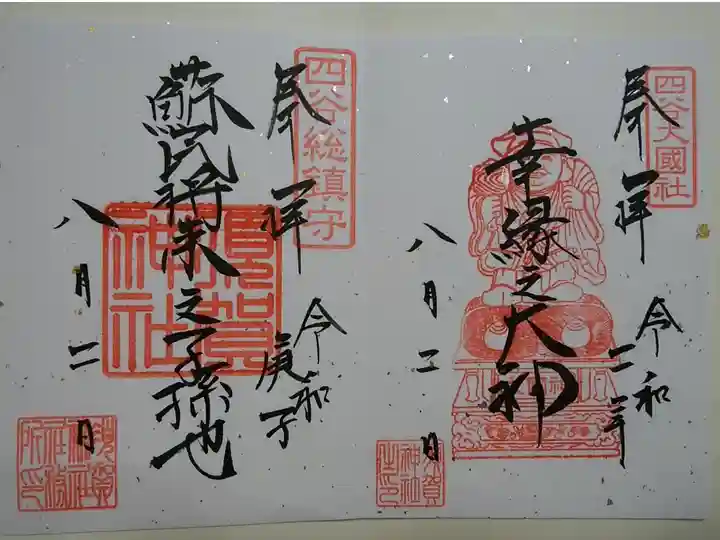 四谷大國社
奉拝
令和二年
幸縁之大神
八月二日
須賀
神社
之印
四谷総鎮守
奉拝
令和
庚子
蘇民将来之子孫也
須賀
神社
八月二日
須賀
神社
社務
所印